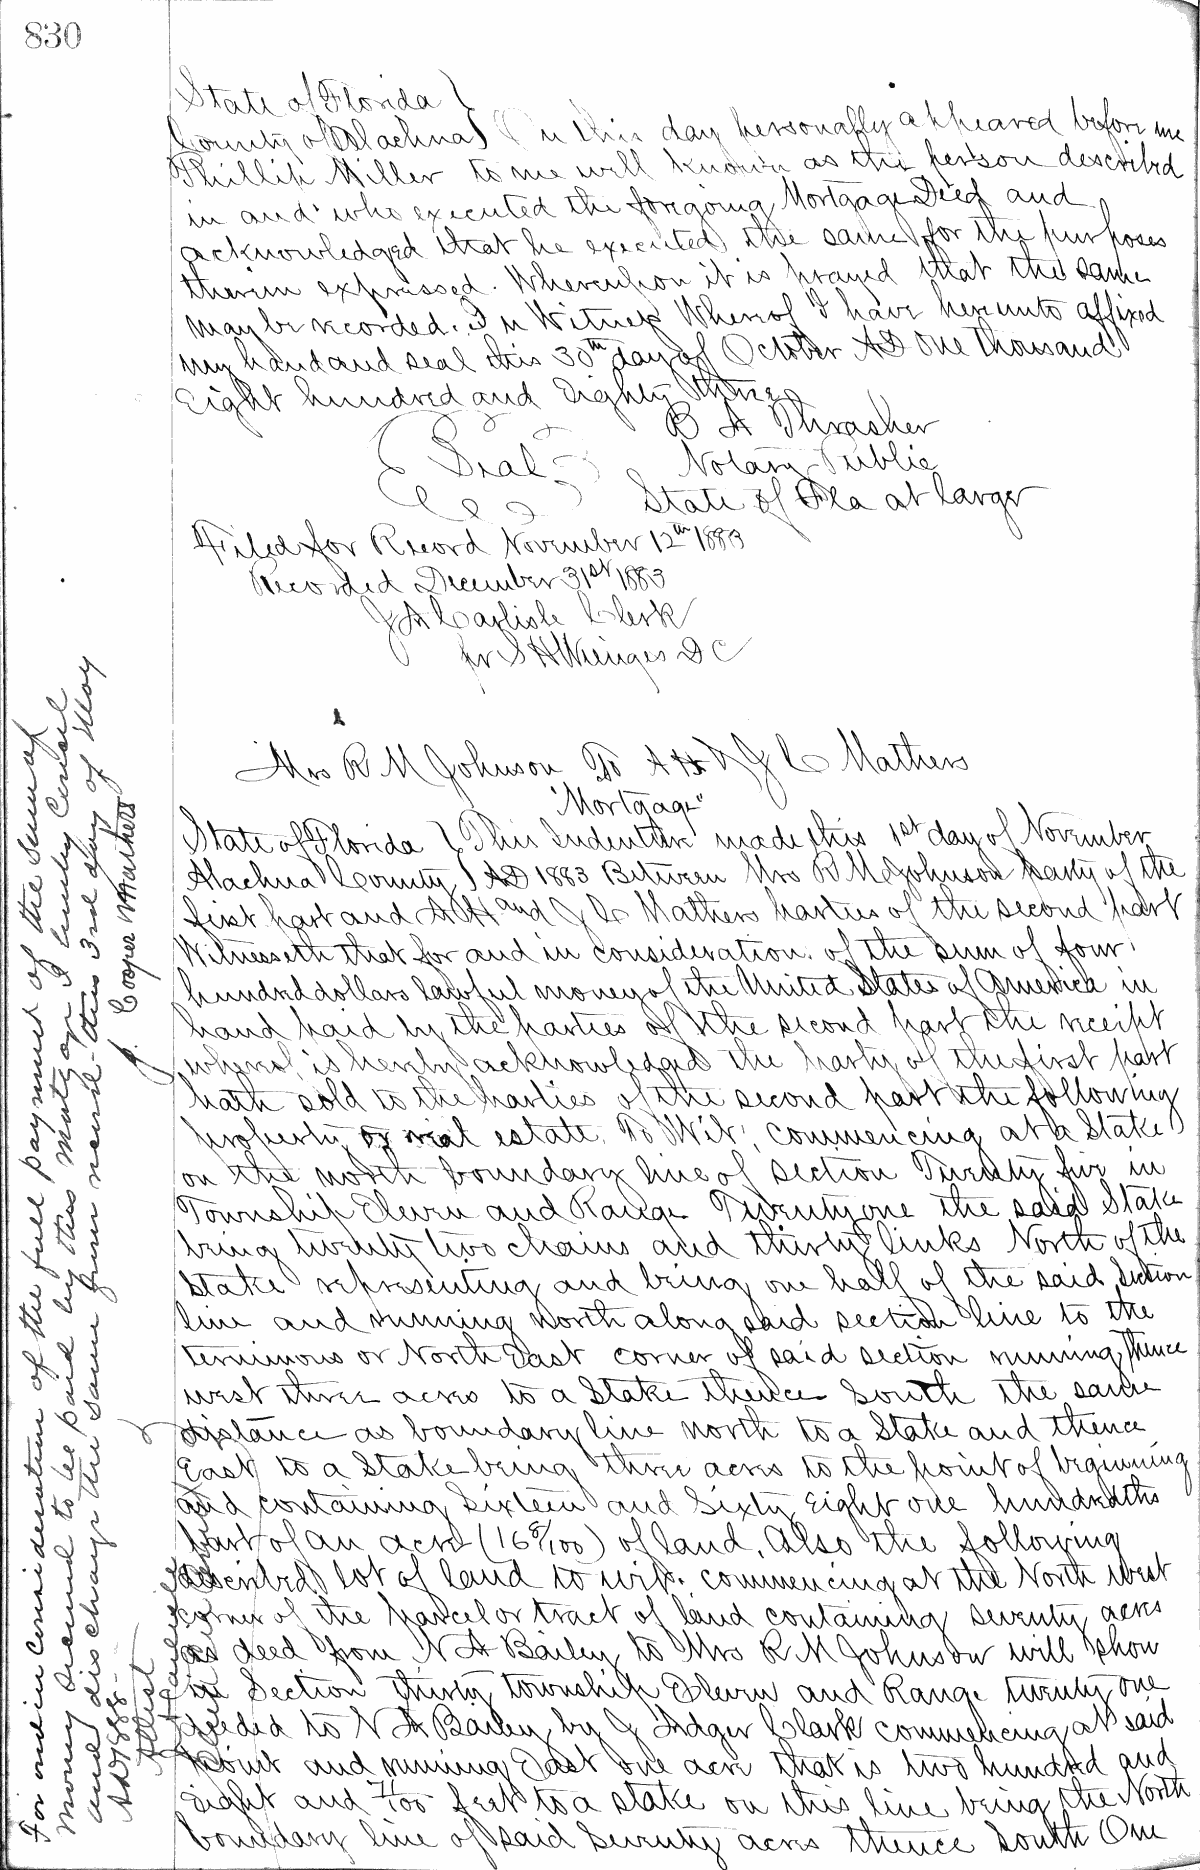 830
State of Florida }
County of Alachua } On this day personally appeared before me
Phillip Miller to me well known as the person described
in and who executed the foregoing Mortgage Deed and
acknowledged that he executed the same for the purposes
therein expressed. Whereupon it is prayed that the same
may be recorded. In Witness Whereof I have hereunto affixed
my hand and seal this 30th day of October AD One thousand
Eight hundred and Eighty three
B A Thrasher
Seal Notary Public
State of Fla at large
Filed for Record November 12th 1883
Recorded December 31st 1883
J A Carlisle Clerk
pr S H Wienges D C
Mrs R M Johnson To A H & J C Mathers
"Mortgage"
State of Florida } This Indenture made this 1st day of November
Alachua County } AD 1883 Between Mrs R M Johnson party of the
first part and A H and J C Mathers parties of the second part
Witnesseth that for and in consideration of the sum of four
hundred dollars lawful money of the United States of America in
hand paid by the parties of the second part the receipt
whereof is hereby acknowledged the party of the first part
hath sold to the parties of the second part the following
property or real estate, To Wit; commencing at a Stake
on the north boundary line of section Twenty five in
Township Eleven and Range Twenty one the said Stake
being twenty two chains and thirty links North of the
Stake representing and being one half of the said Section
line and running north along said section line to the
terminous or North East corner of said section running thence
west three acres to a Stake thence South the same
distance as boundary line north to a Stake and thence
East to a Stake being three acres to the point of beginning
and containing Sixteen and Sixty Eight one hundredths
part of an acre (16 /100) of land. Also the following
described lot of land to wit: commencing at the North West
corner of the parcel or tract of land containing seventy acres
as deed from N A Bailey to Mrs R M Johnson will show
in Section thirty township Eleven and Range twenty one
deeded to N A Bailey by J Adger Clark commencing at said
point and running East one acre that is two hundred and
eight and 7/100 feet to a stake on this line being the North
boundary line of said Seventy acres thence South One
For and in consideration of the full payment of the sum of
money secured to be paid by this mortgage I hereby cancel
and discharge the same from record this 3rd day of May
AD 1888
J. Cooper Mathers
Attest